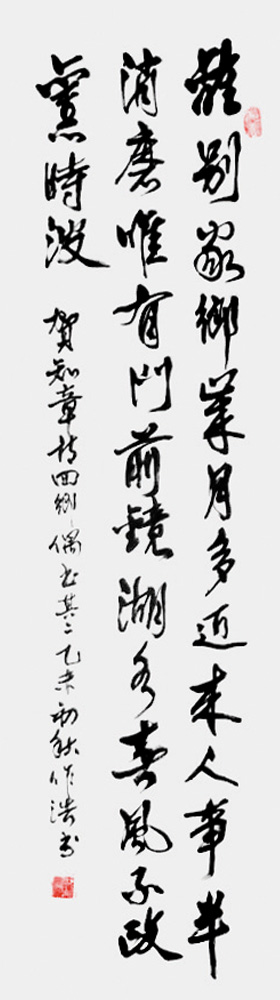 離別家鄉歲月多近来人事半
消磨唯有門前鏡湖水春風不改
舊時波
賀知章詩回鄉偶书其二乙未初秋作浩书